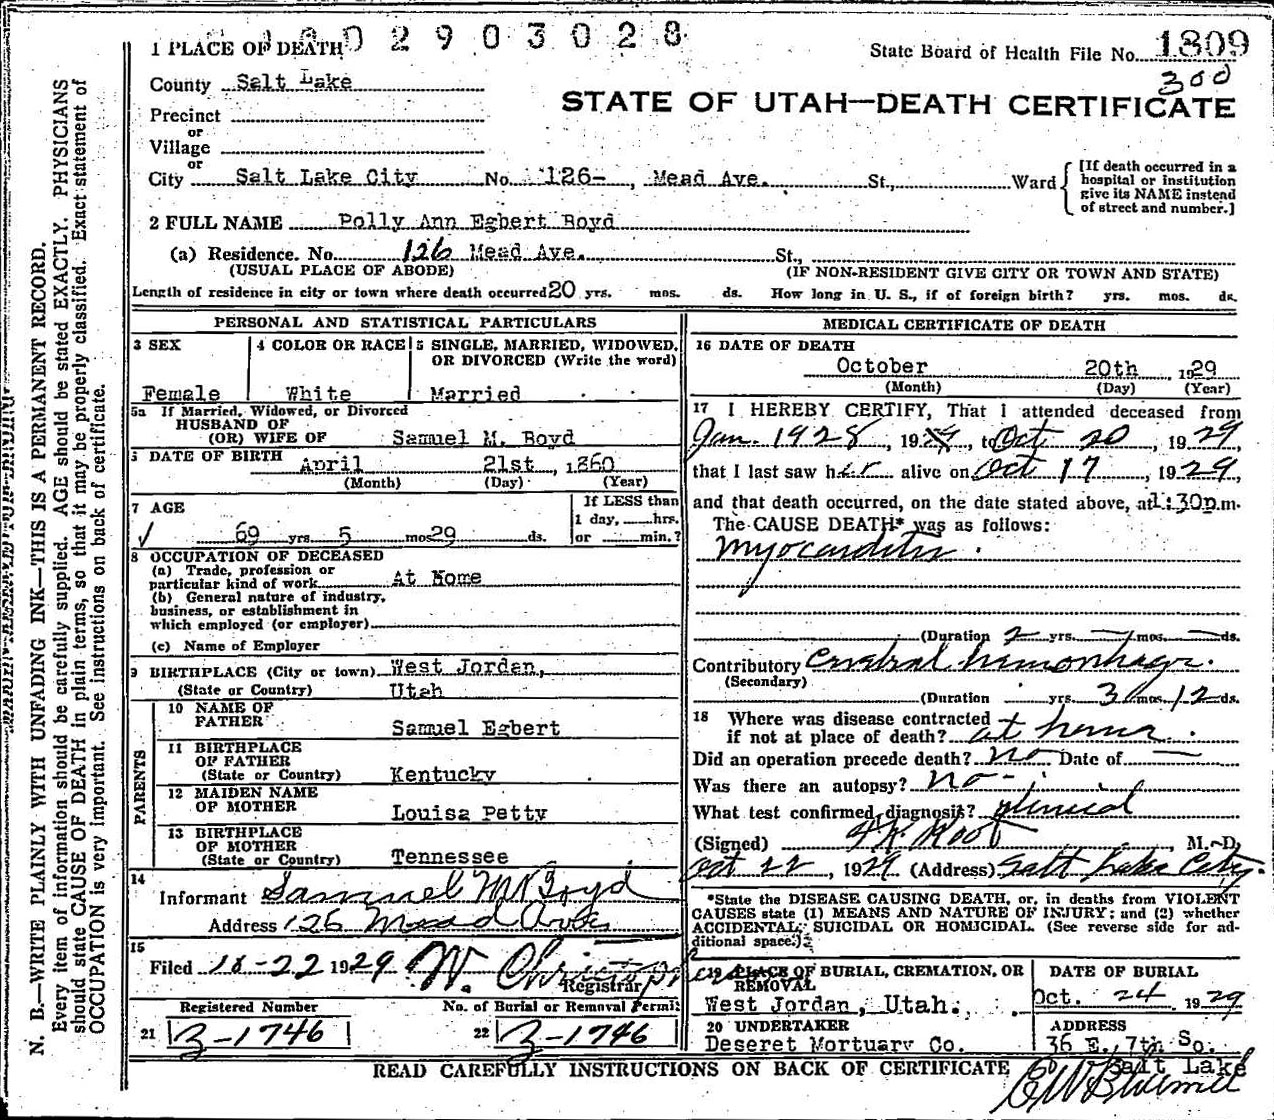 1 PLACE OF DEATH
0 2 9 0 3 0 2 8
State Board of Health File No. 1809
300
County Salt Lake
STATE OF UTAH—DEATH CERTIFICATE
Precinct
or
Village
or
City Salt Lake City No. 126- , Mead Ave. St., Ward
[If death occurred in a hospital or institution give its NAME instead of street and number.]
2 FULL NAME Polly Ann Egbert Boyd
(a) Residence. No. 126 Mead Ave. St.,
(USUAL PLACE OF ABODE) (IF NON-RESIDENT GIVE CITY OR TOWN AND STATE)
Length of residence in city or town where death occurred 20 yrs. mos. ds. How long in U. S., if of foreign birth? yrs. mos. ds.
PERSONAL AND STATISTICAL PARTICULARS
3 SEX 4 COLOR OR RACE 5 SINGLE, MARRIED, WIDOWED,
OR DIVORCED (Write the word)
Female White Married
5a If Married, Widowed, or Divorced
HUSBAND OF
(OR) WIFE OF Samuel M. Boyd
DATE OF BIRTH April 21st , 1860
(Month) (Day) (Year)
7 AGE If LESS than
1 day, hrs.
69 yrs 5 mos 29 ds. or min.?
8 OCCUPATION OF DECEASED
(a) Trade, profession or
particular kind of work At Home
(b) General nature of industry,
business, or establishment in
which employed (or employer)
(c) Name of Employer
9 BIRTHPLACE (City or town) West Jordan,
(State or Country) Utah
PARENTS
10 NAME OF
FATHER Samuel Egbert
11 BIRTHPLACE
OF FATHER
(State or Country) Kentucky
12 MAIDEN NAME
OF MOTHER Louisa Petty
13 BIRTHPLACE
OF MOTHER
(State or Country) Tennessee
14
Informant Samuel M Boyd
Address 126 Mead Ave
15
Filed 10-22 1929 W. Christopherson
Registrar
Registered Number No. of Burial or Removal Permit
21 3-1746 22 3-1746
MEDICAL CERTIFICATE OF DEATH
16 DATE OF DEATH
October 20th 1929
(Month) (Day) (Year)
17 I HEREBY CERTIFY, That I attended deceased from
Jan. 1928 , 19 , to Oct 20 , 1929
that I last saw her alive on Oct 17 , 1929,
and that death occurred, on the date stated above, at 1:30p.m.
The CAUSE DEATH* was as follows:
Myocarditis .
(Duration 2 yrs. — mos. — ds.
Contributory Cerebral hemorrhage.
(Secondary)
(Duration yrs. 3 mos. 12 ds.
18 Where was disease contracted
if not at place of death? at home .
Did an operation precede death? No Date of —
Was there an autopsy? No -
What test confirmed diagnosis? clinical
(Signed) Root , M. D.
Oct 22 , 1929 (Address) Salt Lake City.
*State the DISEASE CAUSING DEATH, or, in deaths from VIOLENT
CAUSES state (1) MEANS AND NATURE OF INJURY; and (2) whether
ACCIDENTAL, SUICIDAL OR HOMICIDAL. (See reverse side for ad-
ditional space.)
19 PLACE OF BURIAL, CREMATION, OR DATE OF BURIAL
REMOVAL
West Jordan, Utah. Oct. 24 1929
20 UNDERTAKER ADDRESS
Deseret Mortuary Co. 36 E. 7th So.
READ CAREFULLY INSTRUCTIONS ON BACK OF CERTIFICATE Salt Lake
N. B.—WRITE PLAINLY WITH UNFADING INK—THIS IS A PERMANENT RECORD.
Every item of information should be carefully supplied. AGE should be stated EXACTLY. PHYSICIANS
should state CAUSE OF DEATH in plain terms, so that it may be properly classified. Exact statement of
OCCUPATION is very important. See instructions on back of certificate.